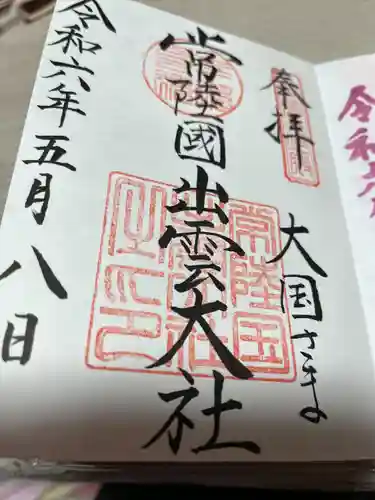 奉拝
大国さま
常陸國出雲大社
令和六年五月八日
常陸国
出雲大社
之印
令和六